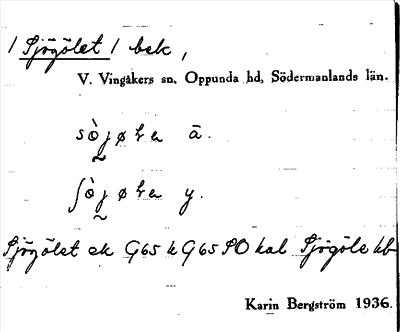 / Sjögölet / bek,
V. Vingåkers sn. Oppunda hd, Södermanlands län.
ä.
y.
Sjögölet ek G65 k G65 SO kal Sjögöle hb
Karin Bergström 1936.